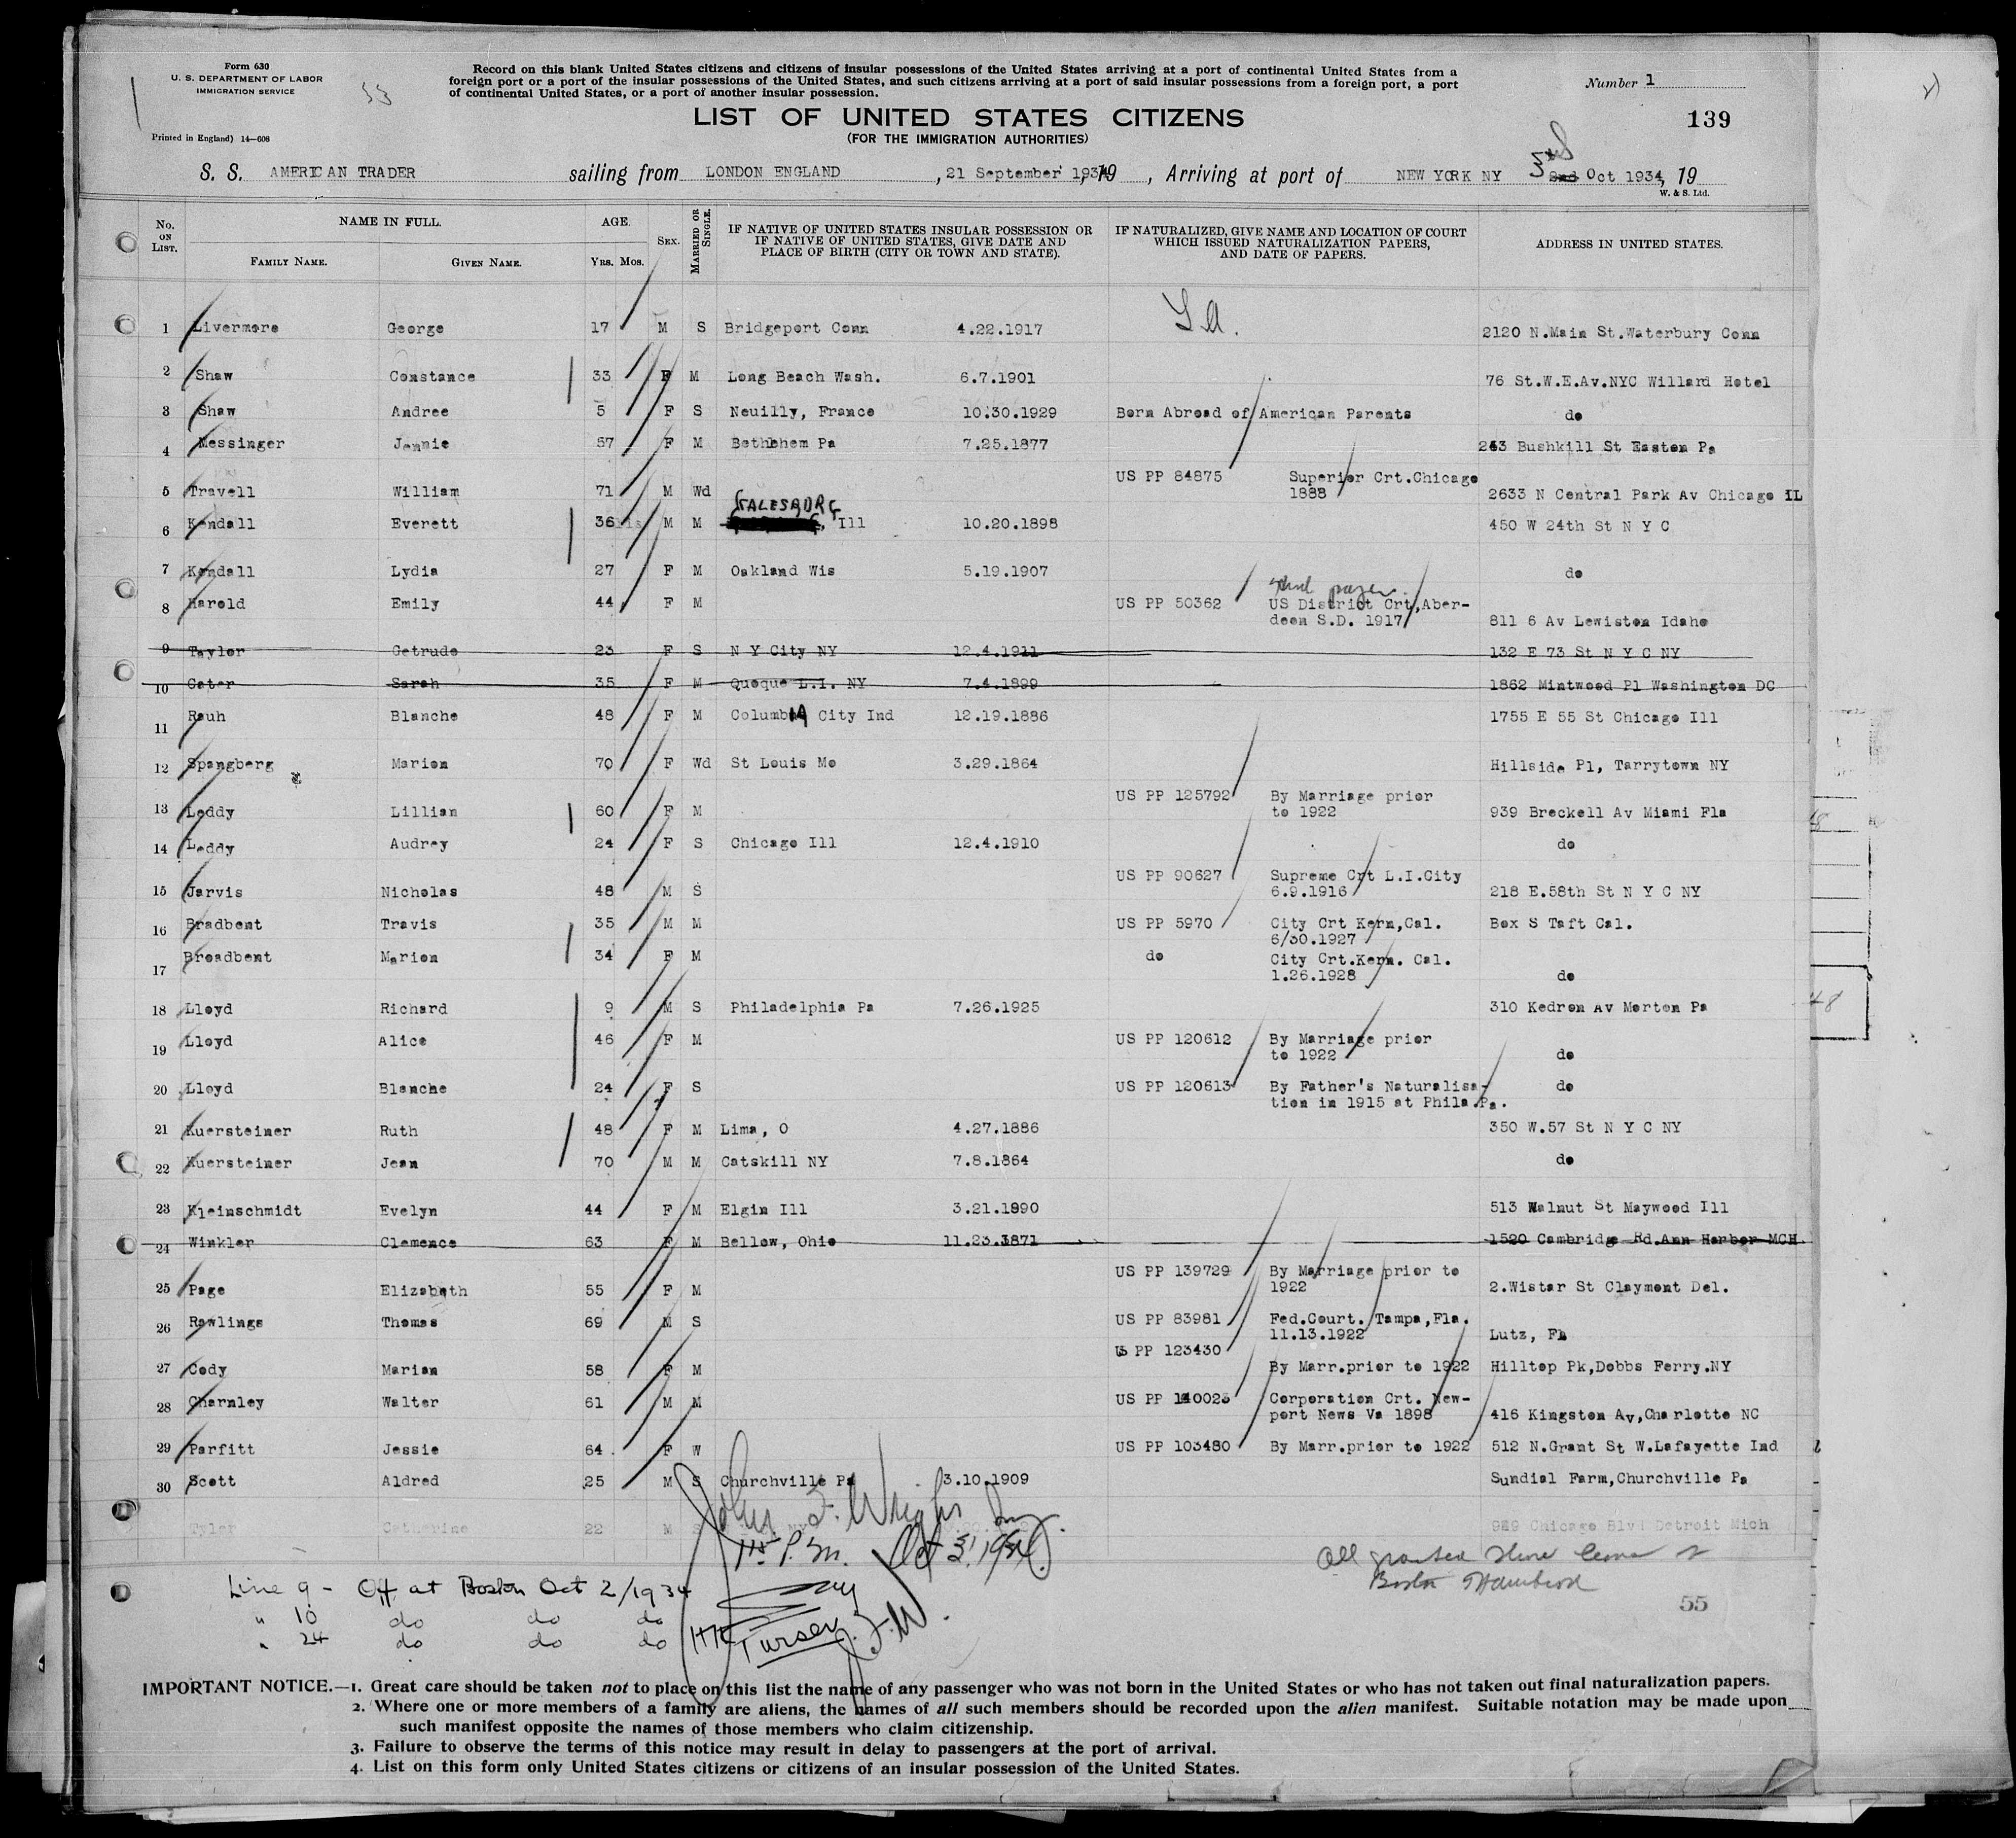 Form 630
U. S. DEPARTMENT OF LABOR
IMMIGRATION SERVICE
Printed in England) 14—608
53
Record on this blank United States citizens and citizens of insular possessions of the United States arriving at a port of continental United States from a
foreign port or a port of the insular possessions of the United States, and such citizens arriving at a port of said insular possessions from a foreign port, a port
of continental United States, or a port of another insular possession.
Number 1
LIST OF UNITED STATES CITIZENS
(FOR THE IMMIGRATION AUTHORITIES)
139
S. S. AMERICAN TRADER sailing from LONDON ENGLAND, 21 September 1934, 19 , Arriving at port of NEW YORK NY 3rd 2nd Oct 1934, 19
W. & S. Ltd.
No. ON LIST. NAME IN FULL. AGE. SEX. MARRIED OR SINGLE. IF NATIVE OF UNITED STATES INSULAR POSSESSION OR IF NATIVE OF UNITED STATES, GIVE DATE AND PLACE OF BIRTH (CITY OR TOWN AND STATE). IF NATURALIZED, GIVE NAME AND LOCATION OF COURT WHICH ISSUED NATURALIZATION PAPERS, AND DATE OF PAPERS. ADDRESS IN UNITED STATES.
FAMILY NAME. GIVEN NAME. YRS. MOS.
1 Livermore George 17 M S Bridgeport Conn 4.22.1917 2120 N.Main St.Waterbury Conn
2 Shaw Constance 33 F M Long Beach Wash. 6.7.1901 76 St.W.E.Av.NYC Willard Hotel
3 Shaw Andree 5 F S Neuilly, France 10.30.1929 Born Abroad of American Parents do
4 Messinger Jennie 57 F M Bethlehem Pa 7.25.1877 243 Bushkill St Easton Pa
5 Travell William 71 M Wd US PP 84875 Superior Crt.Chicago 1888 2633 N Central Park Av Chicago IL
6 Kendall Everett 36 M M GALESBURG, Ill 10.20.1898 450 W 24th St N Y C
7 Kendall Lydia 27 F M Oakland Wis 5.19.1907 do
8 Harold Emily 44 F M US PP 50362 US District Crt,Aber-
deen S.D. 1917 811 6 Av Lewiston Idaho
9 Taylor Getrude 23 F S N Y City NY 12.4.1911 132 E 73 St N Y C NY
10 Cater Sarah 35 F M Quoque L.I. NY 7.4.1899 1862 Mintwood Pl Washington DC
11 Rauh Blanche 48 F M Columbia City Ind 12.19.1886 1755 E 55 St Chicago Ill
12 Spangberg Marion 70 F Wd St Louis Mo 3.29.1864 Hillside Pl, Tarrytown NY
13 Leddy Lillian 60 F M US PP 125792 By Marriage prior
to 1922 939 Breckell Av Miami Fla
14 Leddy Audrey 24 F S Chicago Ill 12.4.1910 do
15 Jarvis Nicholas 48 M S US PP 90627 Supreme Crt L.I.City
6.9.1916 218 E.58th St N Y C NY
16 Bradbent Travis 35 M M US PP 5970 City Crt Kern,Cal.
6/30.1927 Box S Taft Cal.
17 Broadbent Marion 34 F M do City Crt.Kern. Cal.
1.26.1928 do
18 Lloyd Richard 9 M S Philadelphia Pa 7.26.1925 310 Kedron Av Morton Pa
19 Lloyd Alice 46 F M US PP 120612 By Marriage prior
to 1922 do
20 Lloyd Blanche 24 F S US PP 120613 By Father's Naturalisa-
tion in 1915 at Phila.Pa. do
21 Kuersteiner Ruth 48 F M Lima, O 4.27.1886 350 W.57 St N Y C NY
22 Kuersteiner Jean 70 M M Catskill NY 7.8.1864 do
23 Kleinschmidt Evelyn 44 F M Elgin Ill 3.21.1890 513 Walnut St Maywood Ill
24 Winkler Clemence 63 F M Bellow, Ohio 11.23.1871 1520 Cambridge Rd.Ann Harbor MCH
25 Page Elizabeth 55 F M US PP 139729 By Marriage prior to
1922 2.Wistar St Claymont Del.
26 Rawlings Thomas 69 M S US PP 83981 Fed.Court. Tampa,Fla.
11.13.1922 Lutz, Fla
27 Cody Marian 58 F M US PP 123430 By Marr.prior to 1922 Hilltop Pk,Dobbs Ferry.NY
28 Charnley Walter 61 M M US PP 140023 Corporation Crt. New-
port News Va 1898 416 Kingston Av,Charlotte NC
29 Parfitt Jessie 64 F W US PP 103480 By Marr.prior to 1922 512 N.Grant St W.Lafayette Ind
30 Scott Aldred 25 M S Churchville Pa 3.10.1909 Sundial Farm,Churchville Pa
Tyler Catherine 22 M S 929 Chicago Blvd Detroit Mich
John F. Wright
P.M. Oct 3. 1934
All granted shore leave
Boston
55
Line 9 - Off at Boston Oct 2/1934
" 10 do do do
" 24 do do do
Purser J.F.W.
IMPORTANT NOTICE.—1. Great care should be taken not to place on this list the name of any passenger who was not born in the United States or who has not taken out final naturalization papers.
2. Where one or more members of a family are aliens, the names of all such members should be recorded upon the alien manifest. Suitable notation may be made upon
such manifest opposite the names of those members who claim citizenship.
3. Failure to observe the terms of this notice may result in delay to passengers at the port of arrival.
4. List on this form only United States citizens or citizens of an insular possession of the United States.